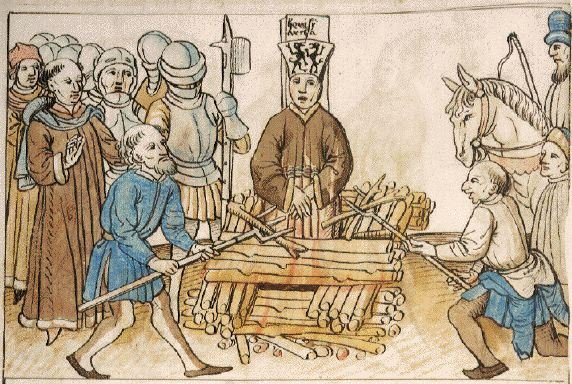 heresi
archa